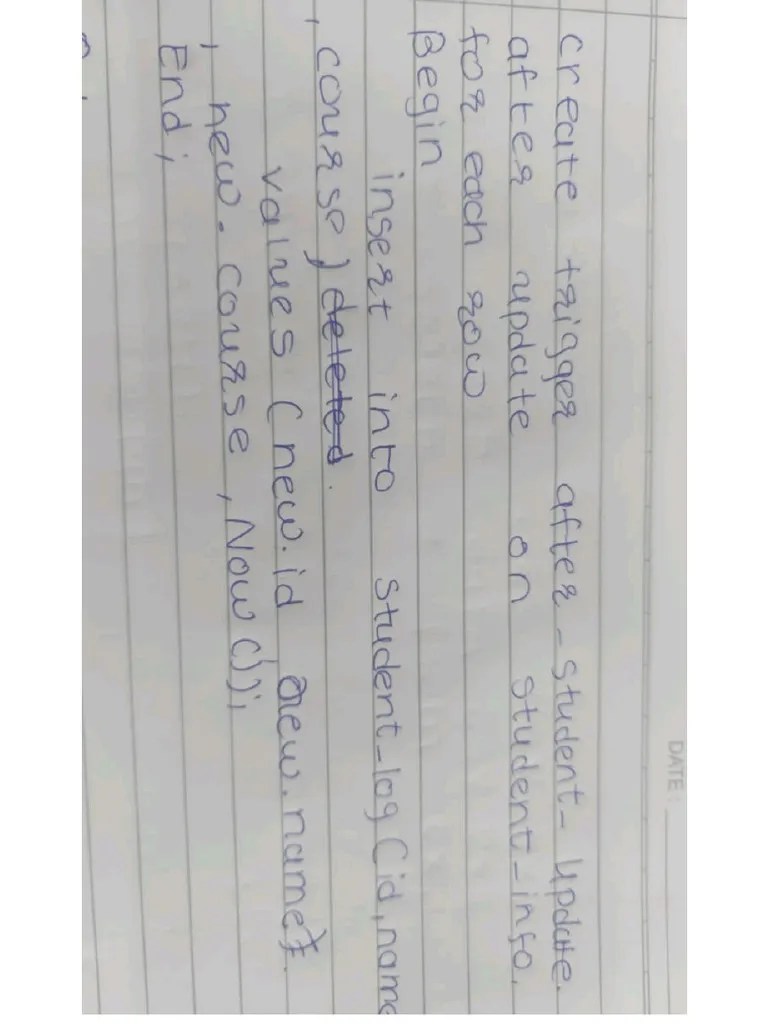 DATE:
create trigger after-student-update.
after update on student-info.
for each row
Begin
insert into student-log (id, name
, course) deleted.
values (new.id new.name).
, new. course, Now ());
End;